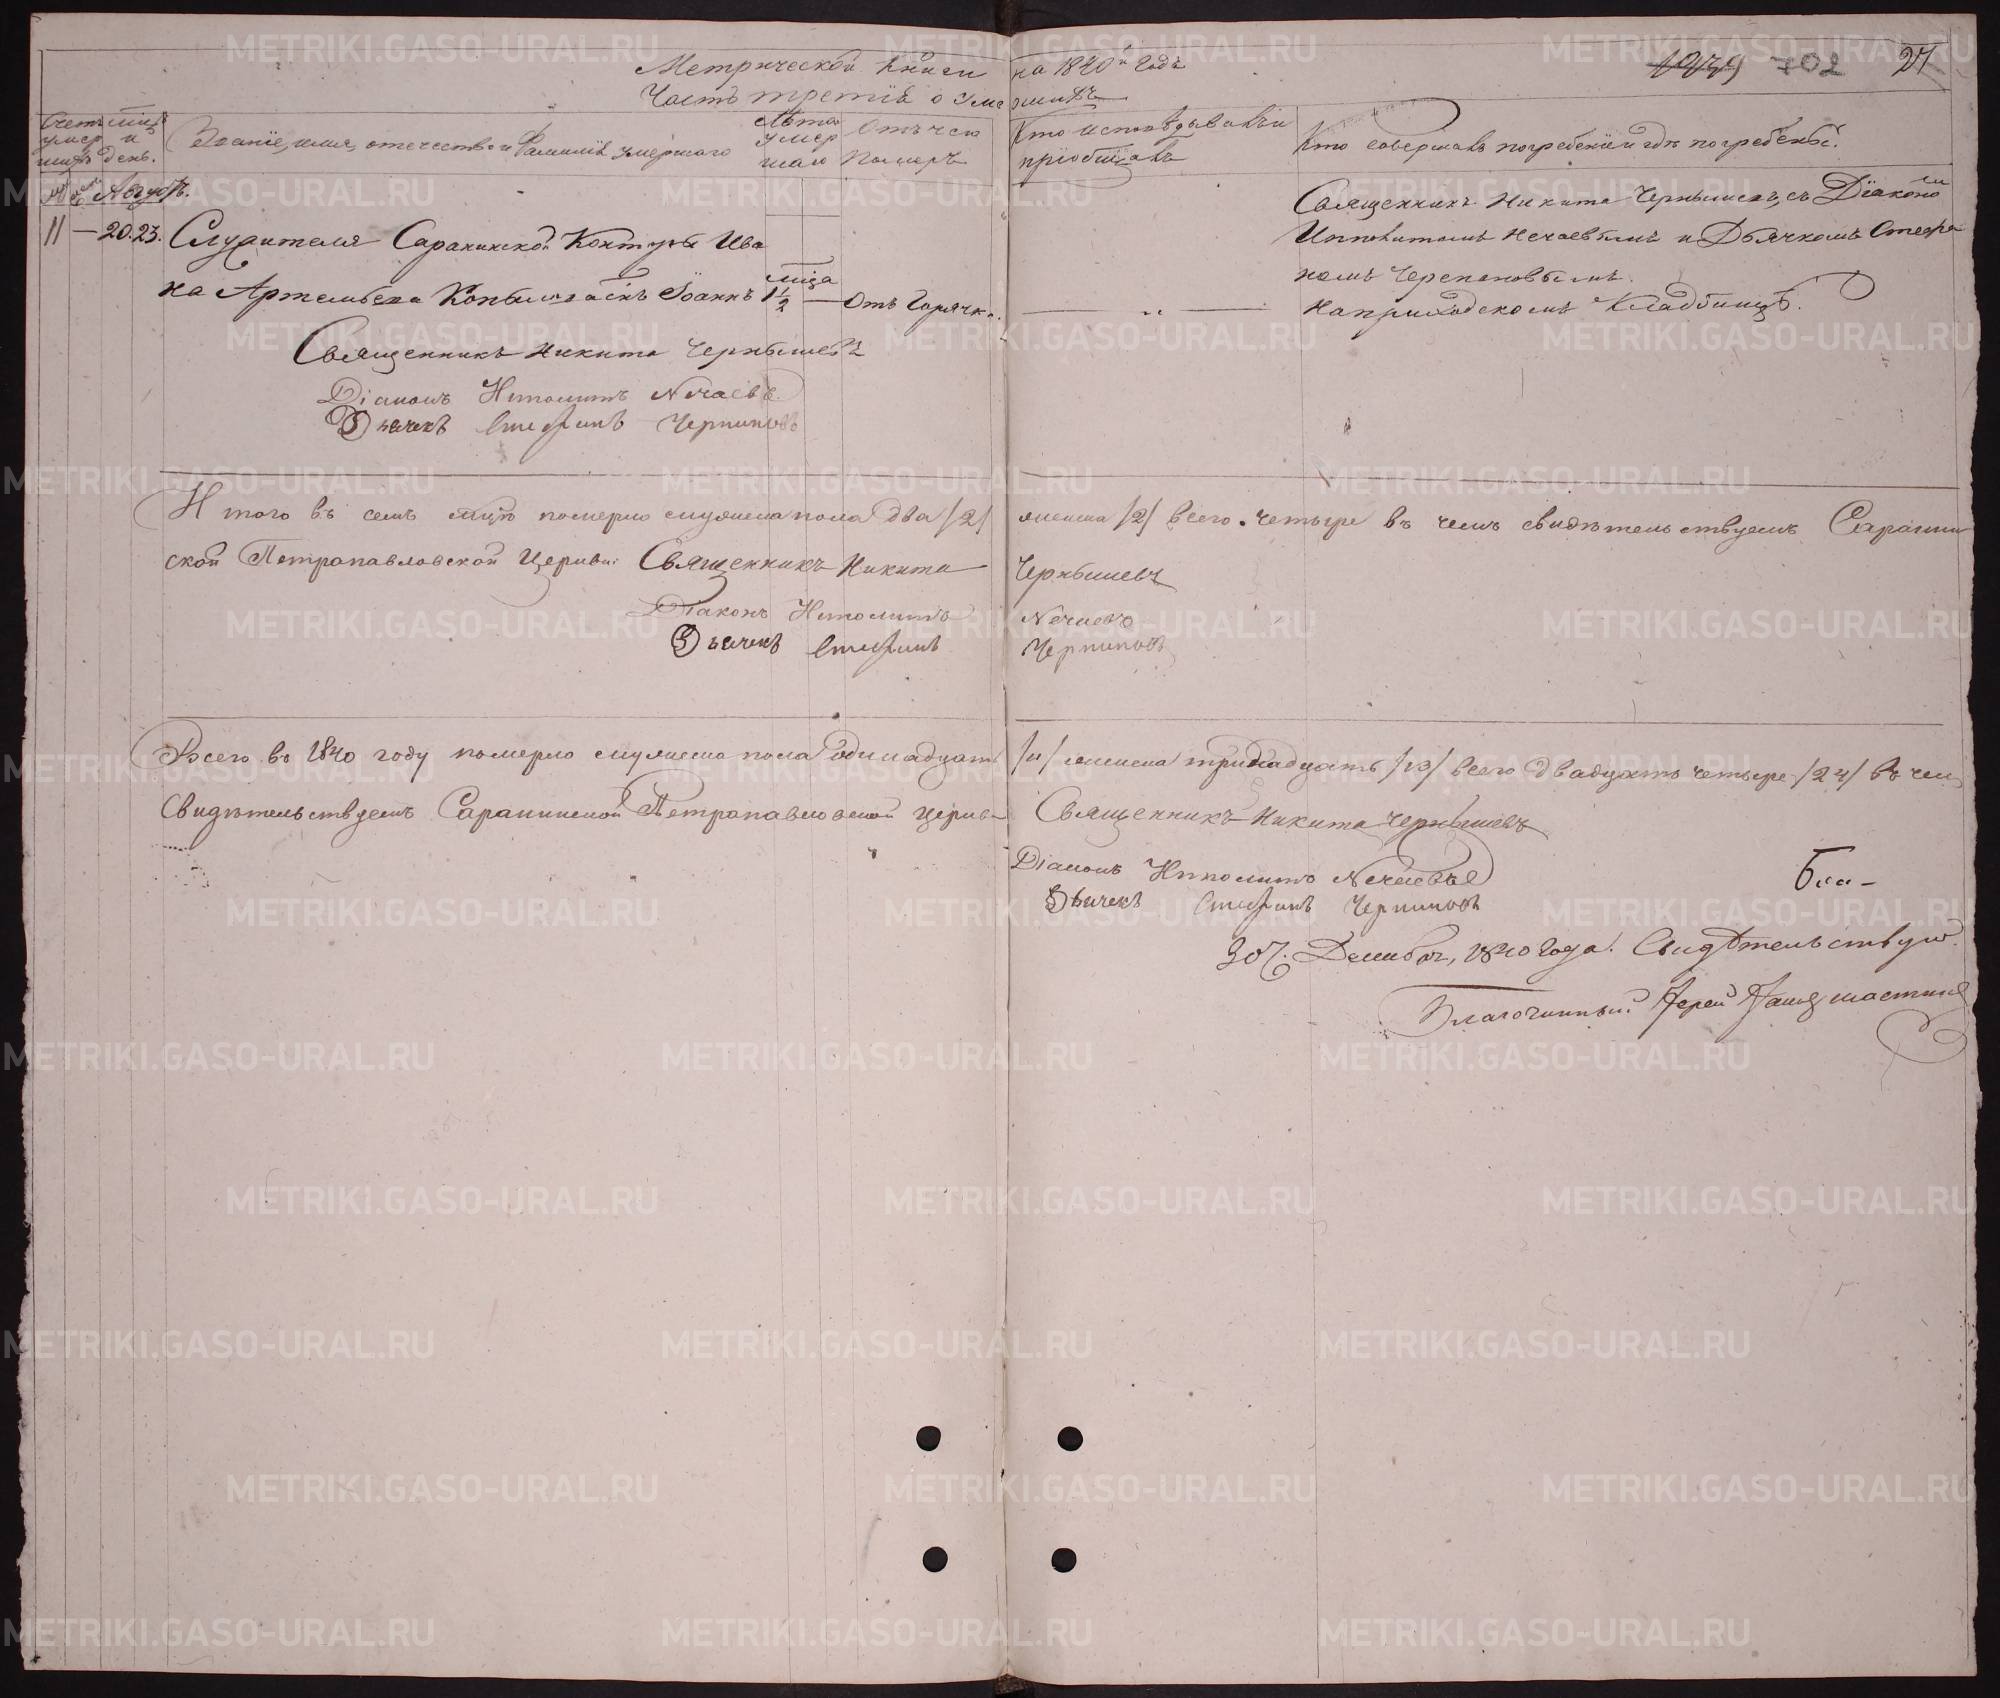 Метрической книги на 1840й годъ
1939 702 27
Часть третія о умершихъ
Счетъ умершихъ
мцъ и день.
Званіе, имя, отечество и Фамилія умершаго
Лѣта умершаго
Отъ чего померъ
Кто исповѣдывалъ и пріобщалъ
Кто совершалъ погребеніе и гдѣ погребены.
Августъ.
11 — 20. 23. Служителя Саранинской Конторы Ива
на Артемьева Копылова сынъ Іоаннъ
мцѧ
1 1/2 — Отъ Горячки.
— „ —
Священникъ Никита Чернышевъ, съ Діакономъ
Ипполитомъ Нечаевымъ и Дьячкомъ Стефа
номъ Черепановымъ.
На приходскомъ Кладбищѣ.
Священникъ Никита Чернышевъ
Діаконъ Иполитъ Нечаевъ
Дьячекъ Стефанъ Черпановъ
Итого въ семъ мцѣ померло мужеска пола два /2/ женска /2/ всего четыре въ чемъ свидѣтельствуемъ Саранин
ской Петропавловской Церкви: Священникъ Никита Чернышевъ
Діаконъ Иполитъ Нечаевъ
Дьячекъ Стефанъ Черпановъ
Всего въ 1840 году померло мужеска пола одинадцать /11/ женска тринадцать /13/ всего двадцать четыре /24/ въ чем
Свидѣтельствуемъ Саранинской Петропавловской церкви Священникъ Никита Чернышевъ
Діаконъ Иполитъ Нечаевъ
Дьячекъ Стефанъ Черпановъ
30 Декабря, 1840 Года. Свидѣтельствую.
Благочинный Іерей
METRIKI.GASO-URAL.RU